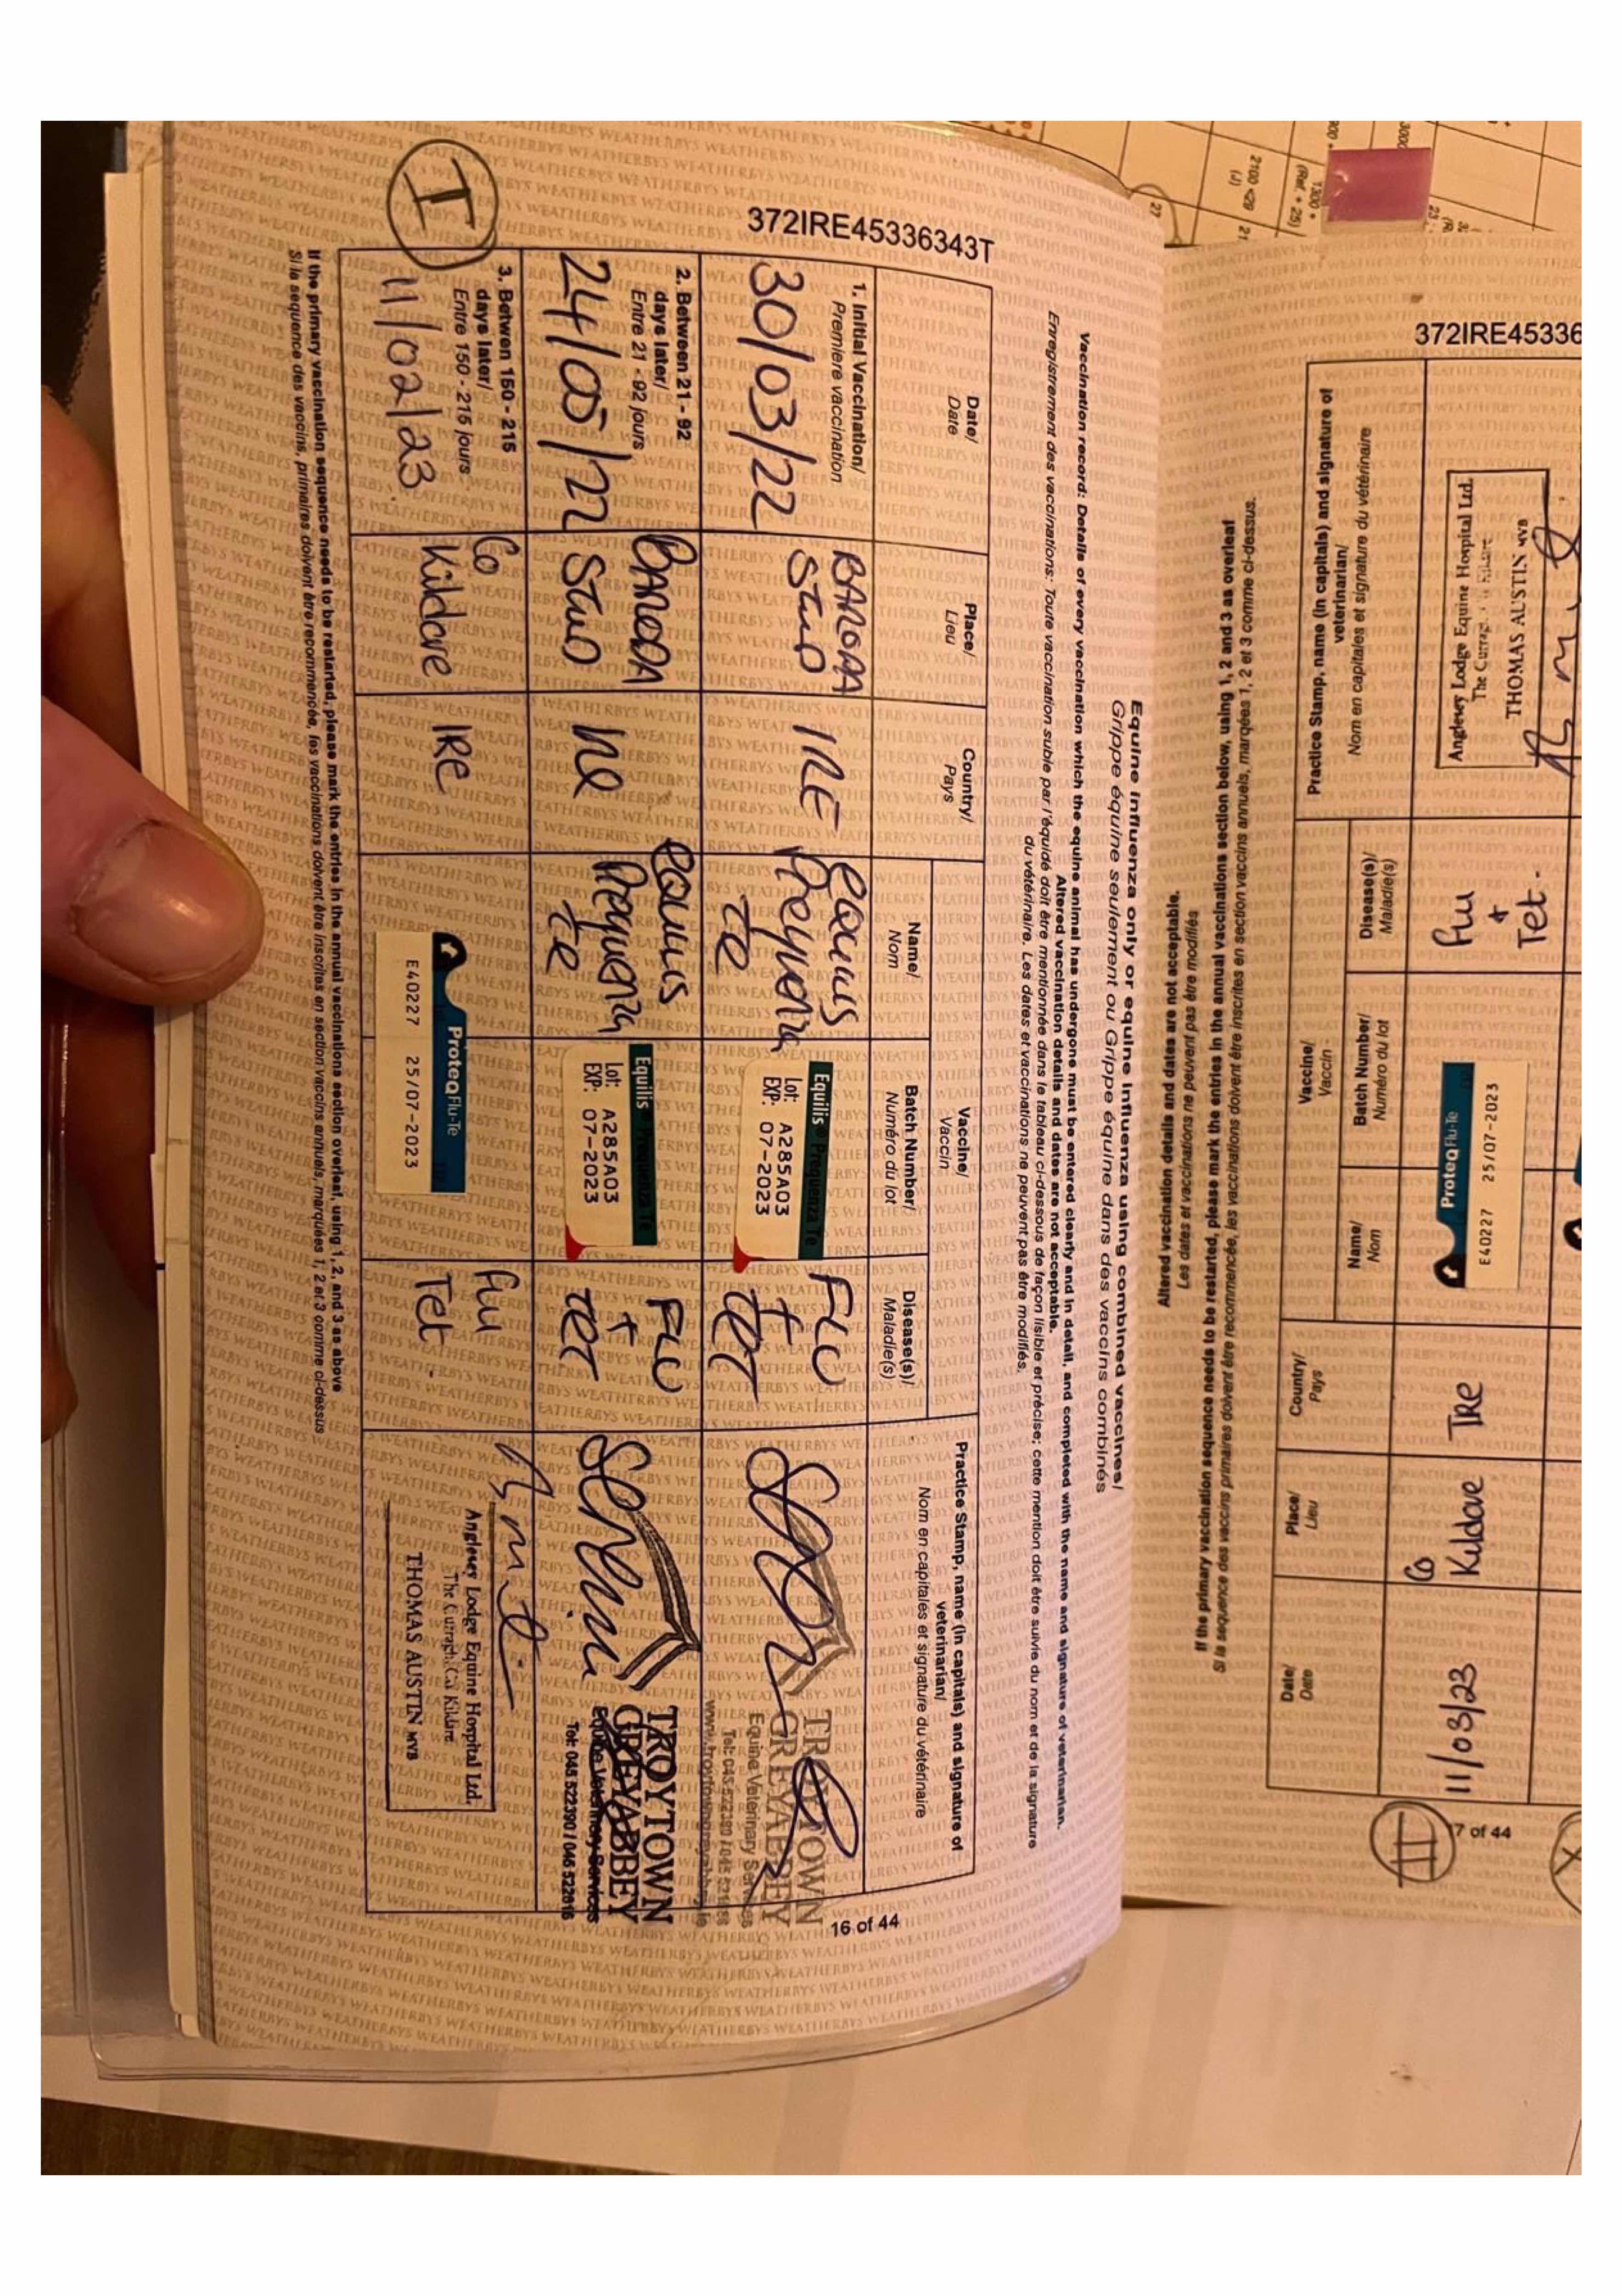 372IRE45336343T
16 of 44
Equine influenza only or equine influenza using combined vaccines/
Grippe équine seulement ou Grippe équine dans des vaccins combinés
Vaccination record: Details of every vaccination which the equine animal has undergone must be entered clearly and in detail, and completed with the name and signature of veterinarian.
Altered vaccination details and dates are not acceptable.
Enregistrement des vaccinations: Toute vaccination subie par l'équidé doit être mentionnée dans le tableau ci-dessous de façon lisible et précise; cette mention doit être suivie du nom et de la signature
du vétérinaire. Les dates et vaccinations ne peuvent pas être modifiés.
Date/
Date
Place/
Lieu
Country/
Pays
Vaccine/
Vaccin
Name/
Nom
Batch Number/
Numéro du lot
Disease(s)/
Maladie(s)
Practice Stamp, name (in capitals) and signature of
veterinarian/
Nom en capitales et signature du vétérinaire
1. Initial Vaccination/
Premiere vaccination
30/03/22
BARODA
STUD
IRE
Equilis
Prequenza
TE
Equilis Prequenza Te
Lot: A285A03
EXP: 07-2023
FLU
+
TET
TROYTOWN
GREYABBEY
Equine Veterinary Services
2. Between 21 - 92
days later/
Entre 21 - 92 jours
24/05/22
BARODA
STUD
IRE
Equilis
Prequenza
TE
Equilis Prequenza Te
Lot: A285A03
EXP: 07-2023
FLU
+
TET
TROYTOWN
GREYABBEY
Equine Veterinary Services
Tel: 045 522390 / 045 522016
3. Betwen 150 - 215
days later/
Entre 150 - 215 jours
11/02/23
Co
Kildare
IRE
ProteqFlu-Te
E40227 25/07-2023
Flu
Tet.
Anglesey Lodge Equine Hospital Ltd.
The Curragh, Co. Kildare
THOMAS AUSTIN MVB
I
If the primary vaccination sequence needs to be restarted, please mark the entries in the annual vaccinations section overleaf, using 1, 2, and 3 as above
Si la sequence des vaccins, primaires doivent être recommencée, les vaccinations doivent être inscrites en section vaccins annuels, marquées 1, 2 et 3 comme ci-dessus
372IRE45336
7 of 44
Altered vaccination details and dates are not acceptable.
Les dates et vaccinations ne peuvent pas être modifiés
If the primary vaccination sequence needs to be restarted, please mark the entries in the annual vaccinations section below, using 1, 2 and 3 as overleaf
Si la sequence des vaccins primaires doivent être recommencée, les vaccinations doivent être inscrites en section vaccins annuels, marquées 1, 2 et 3 comme ci-dessus.
Date/
Date
Place/
Lieu
Country/
Pays
Vaccine/
Vaccin
Name/
Nom
Batch Number/
Numéro du lot
Disease(s)/
Maladie(s)
Practice Stamp, name (in capitals) and signature of
veterinarian/
Nom en capitales et signature du vétérinaire
II
11/03/23
Co
Kildare
IRE
ProteqFlu-Te
E40227 25/07-2023
Flu
+
Tet.
Anglesey Lodge Equine Hospital Ltd.
The Curragh
THOMAS AUSTIN MVB